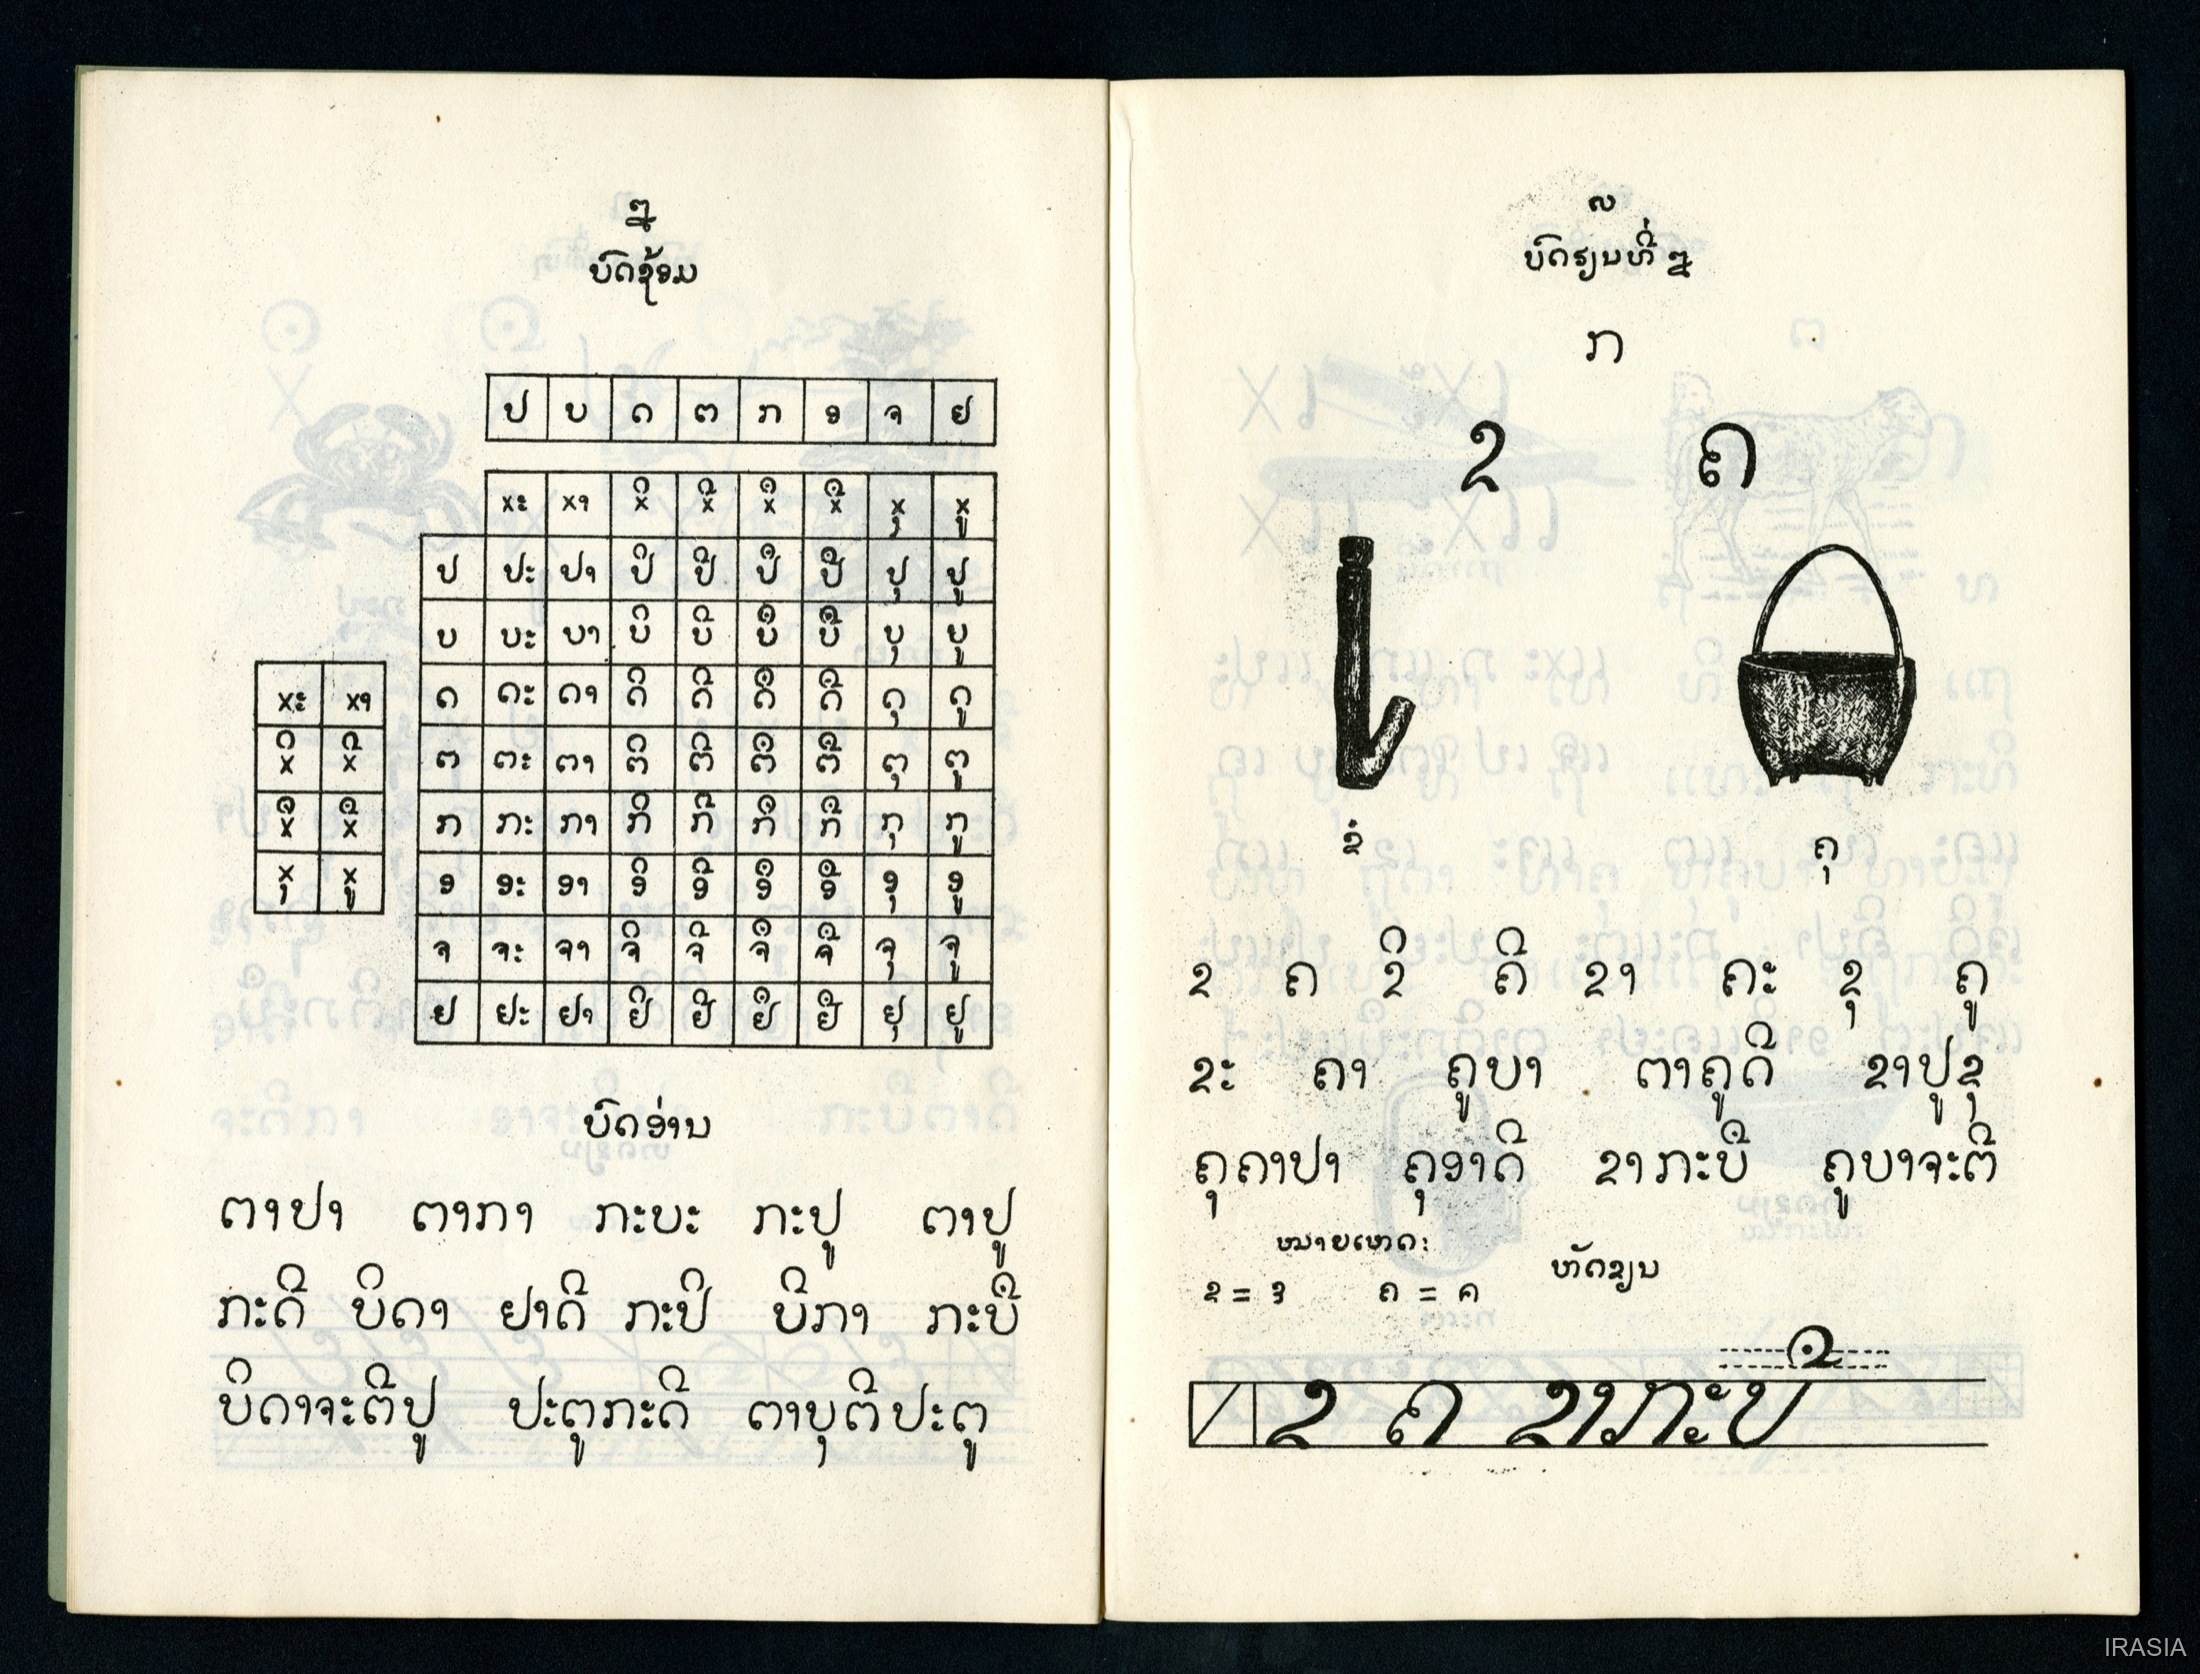 ໗
ບົດຊ້ອມ
ປ ບ ດ ຕ ກ ອ ຈ ຢ
xະ xາ xິ xີ xຶ xື xຸ xູ
ປ ປະ ປາ ປິ ປີ ປຶ ປື ປຸ ປູ
ບ ບະ ບາ ບິ ບີ ບຶ ບື ບຸ ບູ
ດ ດະ ດາ ດິ ດີ ດຶ ດື ດຸ ດູ
ຕ ຕະ ຕາ ຕິ ຕີ ຕຶ ຕື ຕຸ ຕູ
ກ ກະ ກາ ກິ ກີ ກຶ ກື ກຸ ກູ
ອ ອະ ອາ ອິ ອີ ອຶ ອື ອຸ ອູ
ຈ ຈະ ຈາ ຈິ ຈີ ຈຶ ຈື ຈຸ ຈູ
ຢ ຢະ ຢາ ຢິ ຢີ ຢຶ ຢື ຢຸ ຢູ
xະ xາ
xິ xີ
xຶ xື
xຸ xູ
ບົດອ່ານ
ຕາປາ ຕາກາ ກະບະ ກະປູ ຕາປູ
ກະດີ ບິດາ ຢາດີ ກະປິ ບີກາ ກະບື
ບິດາຈະຕີປູ ປະຕູກະດີ ຕາບຸຕີປະຕູ
໘
ບົດຮຽນທີ່ ໗
ກ
ຂ ຄ
ຂໍ
ຄຸ
ຂ ຄ ຂິ ຄີ ຂາ ຄະ ຂຸ ຄູ
ຂະ ຄາ ຄູບາ ຕາຄູດີ ຂາປູຂຸ
ຄຸຄາປາ ຄຸອາດີ ຂາກະບື ຄູບາຈະຕີ
ໝາຍເຫດ:
ຫັດຂຽນ
ຂ ຄ ຂາກະບື
IRASIA